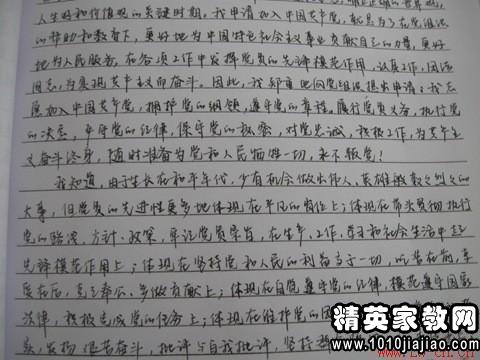 人生好和价值观的关键时期。我申请加入中国共产党,就是为了在党组织
的帮助和教育下,更好地为中国特色社会主义事业贡献自己的力量,更好
地为人民服务,在各项工作中发挥党员的先锋模范作用,认真工作,团结
同志,为实现共产主义而奋斗。因此,我郑重地向党组织提出申请:我志
愿加入中国共产党,拥护党的纲领,遵守党的章程。履行党员义务,执行党
的决定,严守党的纪律,保守党的秘密,对党忠诚,积极工作,为共产主
义奋斗终身,随时准备为党和人民牺牲一切,永不叛党!
我知道,由于生长在和平年代,少有机会做出伟人、英雄般轰轰烈烈的
大事,但党员的先进性更多地体现在平凡的岗位上:体现在带头贯彻执行
党的路线、方针、政策,牢记党员宗旨,在生产、工作、学习和社会生活中起
先锋模范作用上;体现在坚持党和人民的利益高于一切,吃苦在前,享
受在后,克己奉公、多做贡献上;体现在自觉遵守党的纪律,模范遵守国家
法律,积极完成党的任务上;体现在维护党的
实,发扬 艰苦奋斗,批评与自我批评,坚持
精英家教网
www.1010jiajiao.com